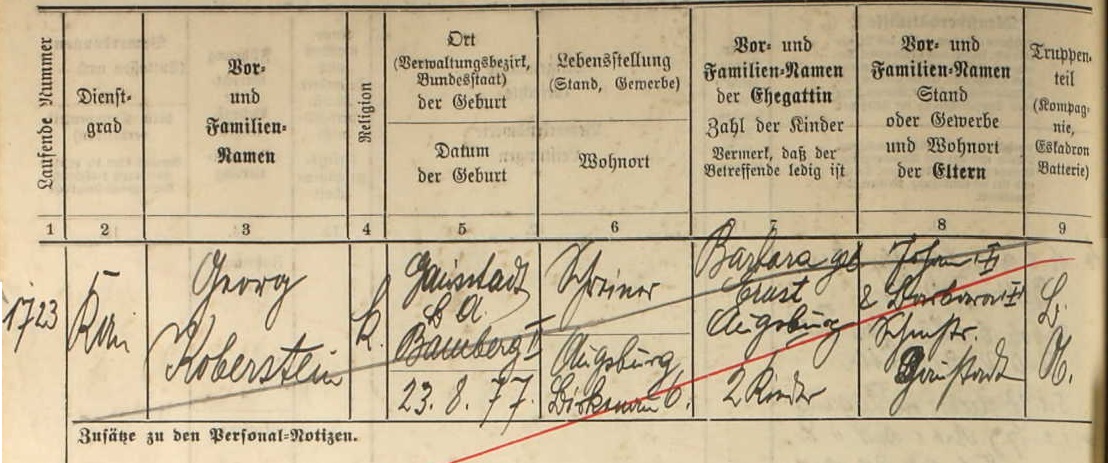 Laufende Nummer
Dienst-
grad
Vor-
und
Familien-
Namen
Religion
Ort
(Verwaltungsbezirk,
Bundesstaat)
der Geburt
Datum
der Geburt
Lebensstellung
(Stand, Gewerbe)
Wohnort
Vor- und
Familien-Namen
der Ehegattin
Zahl der Kinder
Vermerk, daß der
Betreffende ledig ist
Vor- und
Familien-Namen
Stand
oder Gewerbe
und Wohnort
der Eltern
Truppen-
teil
(Kompag-
nie,
Eskadron
Batterie)
1 2 3 4 5 6 7 8 9
1723
Georg
Koberstein
K.
Gaustadt
B.A.
Bamberg I
23. 8. 77.
Schreiner
Augsburg
Barbara geb
Ernst
Augsburg
2 Kinder
Johann
& Barbara
Gaustadt
L.
Zusätze zu den Personal-Notizen.